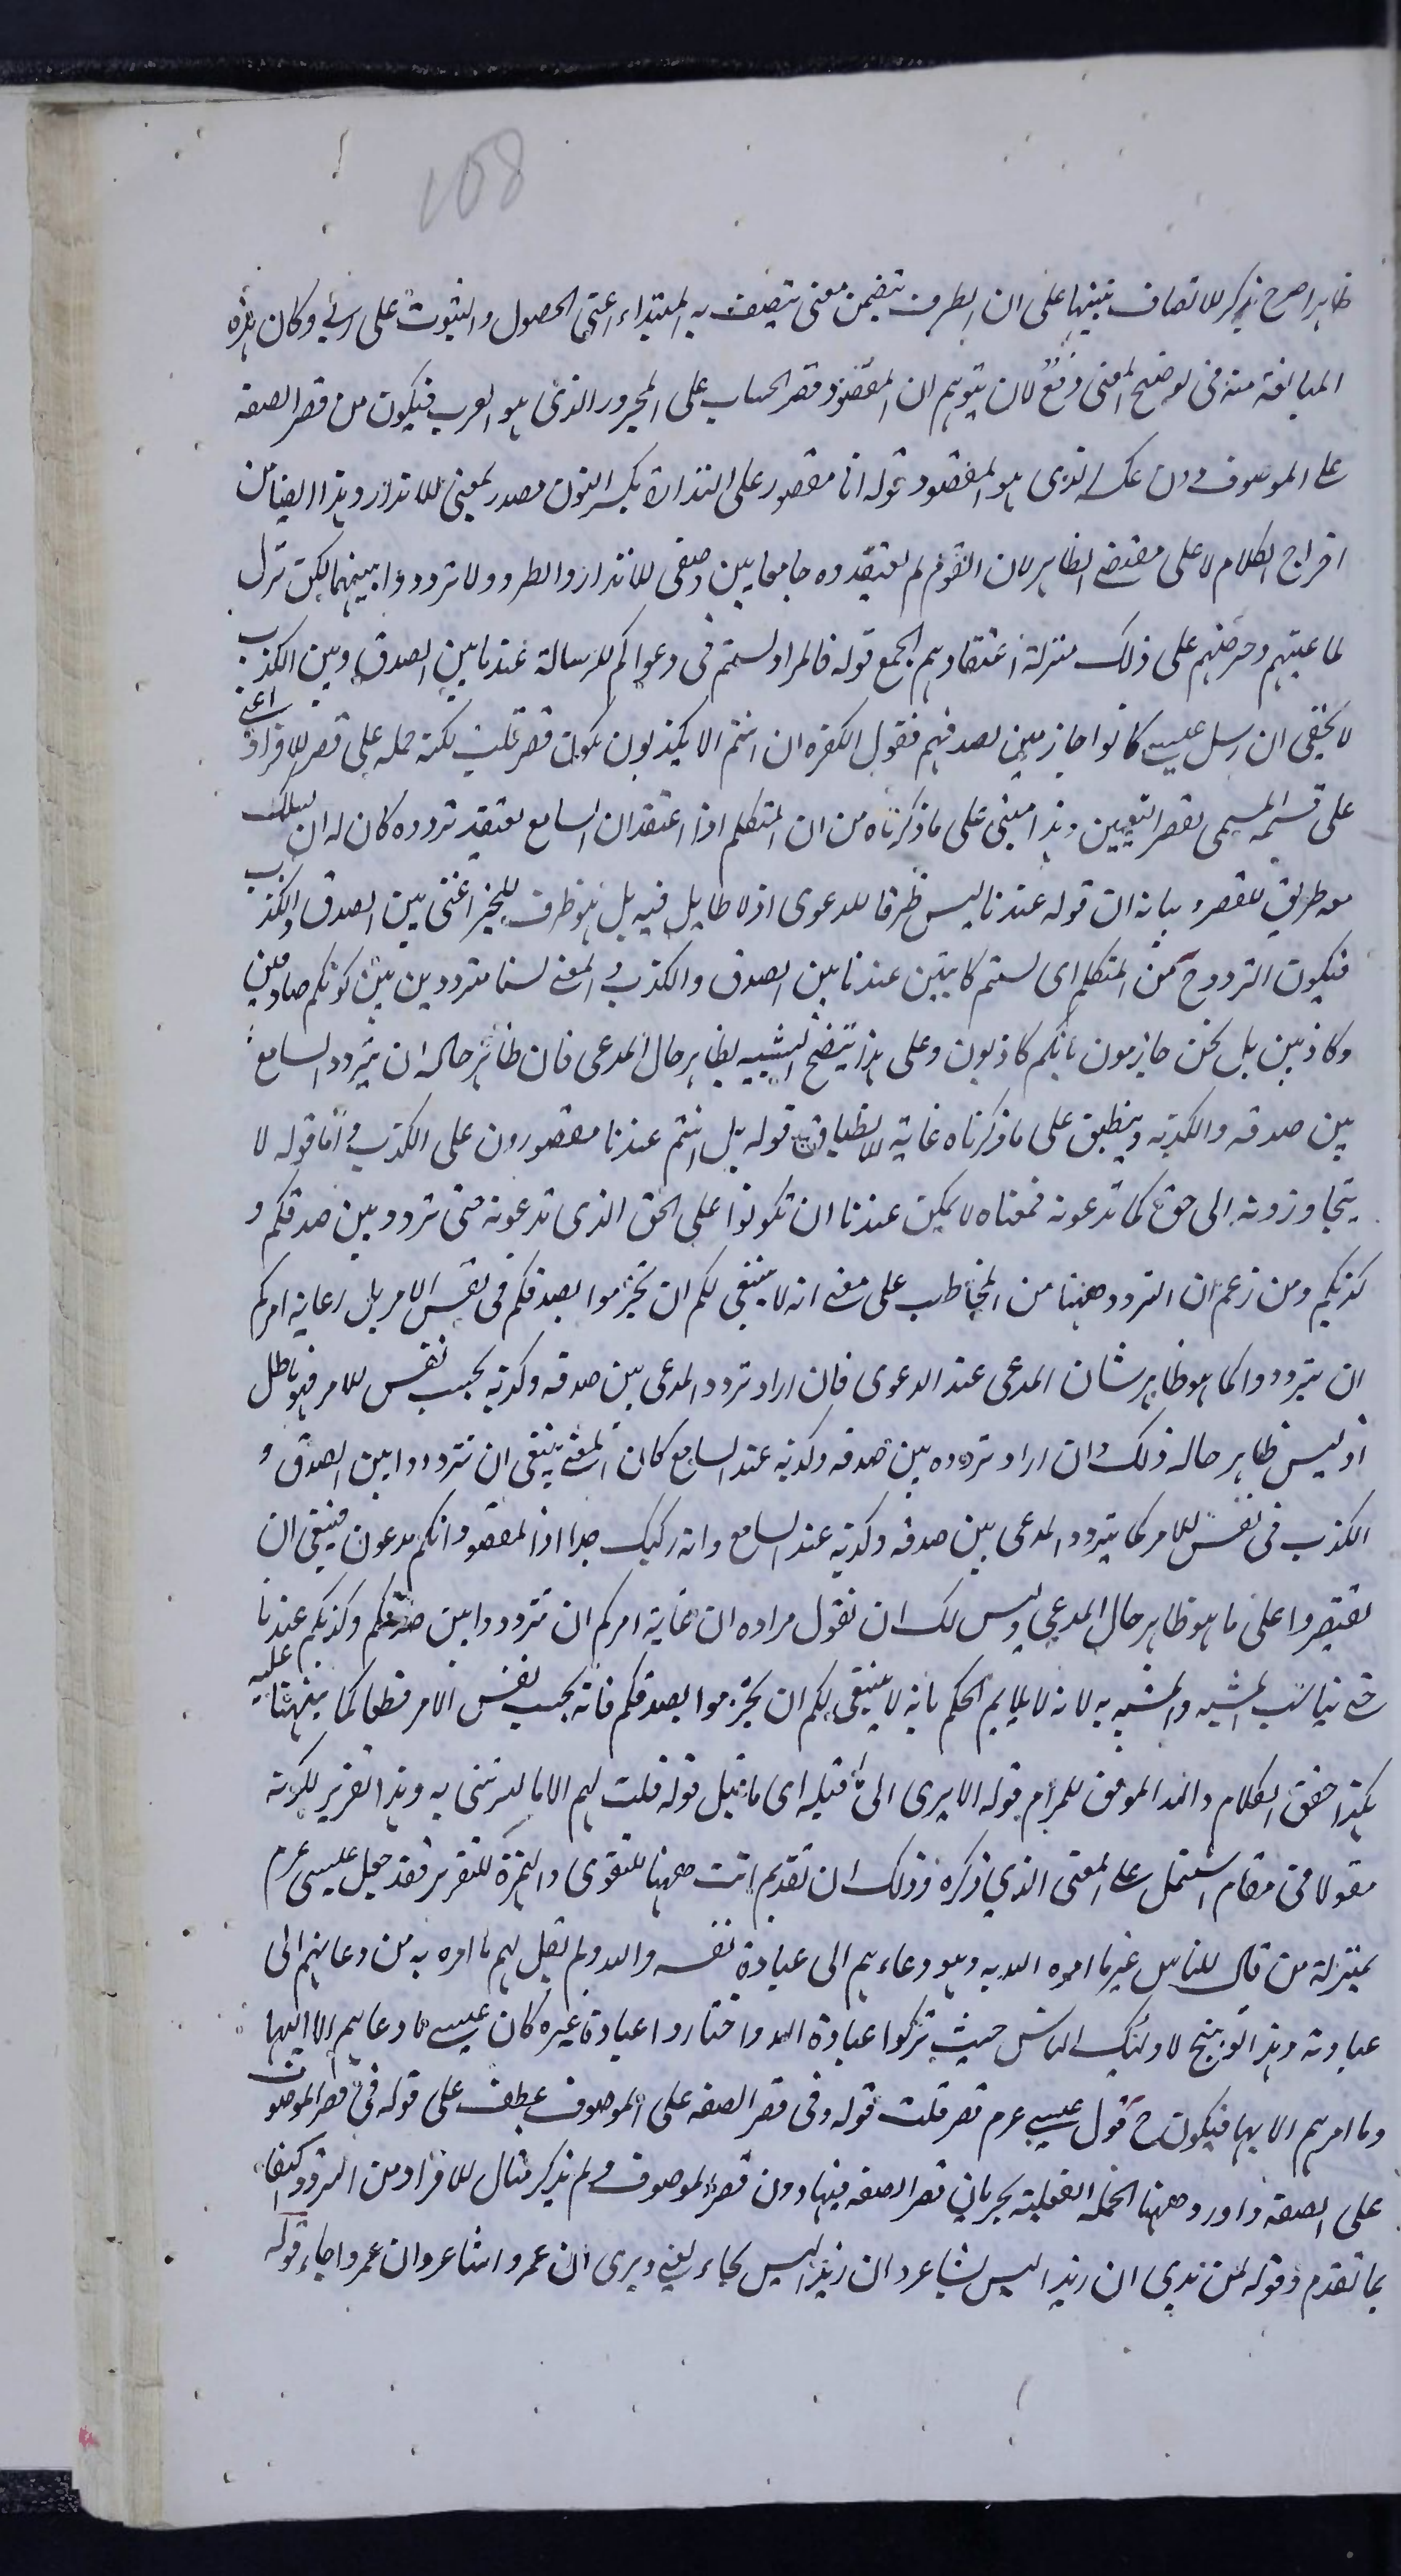 108
ظاهرا صرح بذكر الاتصاف تنبيها على ان الظرف يتضمن معنى يتصف به المبتداء اعنى الحصول والثبوت على رائي وكان هذه
المبالغة منه فى توضيح المعنى دفع لان يتوهم ان المقصود قصر الحساب على المجرور الذى هو الرب فيكون من قصر الصفة
على الموصوف دون عكسه الذى هو المقصود قوله انا مقصور على النذارة بكسر النون مصدر بمعنى الانذار وهذا ايضا من
اخراج الكلام لا على مقتضى الظاهر لان القوم لم يعتقدوه جامعا بين وصفى الانذار والطرد ولا ترددوا بينهما لكن نزل
لما عتبهم وحرضهم على ذلك منزلة اعتقادهم الجمع قوله فالمراد لستم فى دعواكم للرسالة عندنا بين الصدق وبين الكذب
لا يخفى ان رسل عيسى كانوا جازمين بصدقهم فقول الكفرة ان انتم الا تكذبون يكون قصر قلب لكنه حمله على قصر الافراد اعنى
على قسمه المسمى بقصر التعيين وهذا مبنى على ما ذكرناه من ان المتكلم اذا اعتقد ان السامع يعتقد تردده كان له ان يسلك
معه طريق القصر وبيانه ان قوله عندنا ليس ظرفا للدعوى اذ لا طايل فيه بل هو ظرف للخبر اعنى بين الصدق والكذب
فيكون التردد ح من المتكلم اى لستم كائنين عندنا بين الصدق والكذب والمعنى لسنا مترددين بين كونكم صادقين
وكاذبين بل نحن جازمون بانكم كاذبون وعلى هذا يتضح التشبيه بظاهر حال المدعى فان ظاهر حاله ان يتردد السامع
بين صدقه وكذبه وينطبق على ما ذكرناه غاية الانطباق قوله بل انتم عندنا مقصورون على الكذب واما قوله لا
يتجاوزونه الى حق كما تدعونه فمعناه لا يمكن عندنا ان تكونوا على الحق الذى تدعونه حتى نتردد بين صدقكم و
كذبكم ومن زعم ان التردد ههنا من المخاطب على معنى انه لا ينبغى لكم ان تجزموا بصدقكم فى نفس الامر بل غاية امركم
ان تترددوا كما هو ظاهر شان المدعى عند الدعوى فان اراد تردد المدعى بين صدقه وكذبه بحسب نفس الامر فهو باطل
اذ ليس ظاهر حاله ذلك وان اراد تردده بين صدقه وكذبه عند السامع كان المعنى ينبغى ان تترددوا بين الصدق و
الكذب فى نفس الامر كما يتردد المدعى بين صدقه وكذبه عند السامع وانه ركيك جدا اذ المقصود انكم مدعون فينبغى ان
تقتصروا على ما هو ظاهر حال المدعى وليس لك ان تقول مراده ان غاية امركم ان تترددوا بين صدقكم وكذبكم عندنا
حتى يناسب المشبه والمشبه به لانه لا يلايم الحكم بانه لا ينبغى لكم ان تجزموا بصدقكم فانه بحسب نفس الامر قطعا كما نبهنا عليه
هكذا حقق الكلام والله الموفق للمرام قوله الا يرى الى ما قبله اى ما قبل قوله قلت لهم الا ما امرتنى به وهذا التقرير لكونه
مقولا فى مقام اشتمل على المعنى الذي ذكره وذلك ان تقديم انت ههنا للتقوى والهمزة للتقرير فقد جعل عيسى عرم
بمنزلة من قال للناس غير ما امره الله به وهو دعاءهم الى عبادة نفسه والله ولم يقل لهم ما امره به من دعائهم الى
عبادته وهذا توبيخ لاولئك الناس حيث تركوا عبادة الله واختاروا عبادة غيره كان عيسى ما دعاهم الا اليها
وما امرهم الا بها فيكون ح قول عيسى عرم قصر قلب قوله وفى قصر الصفة على الموصوف عطف على قوله فى قصر الموصوف
على الصفة واورد ههنا الجملة الفعلية بجريان قصر الصفة فيها دون قصر الموصوف ولم يذكر مثال الافراد من التردد اكتفاء
بما تقدم وقوله لمن ندي ان زيدا ليس بشاعر وان زيدا ليس بجاء يعنى ويرى ان عمروا شاعر وان عمروا جاء قوله